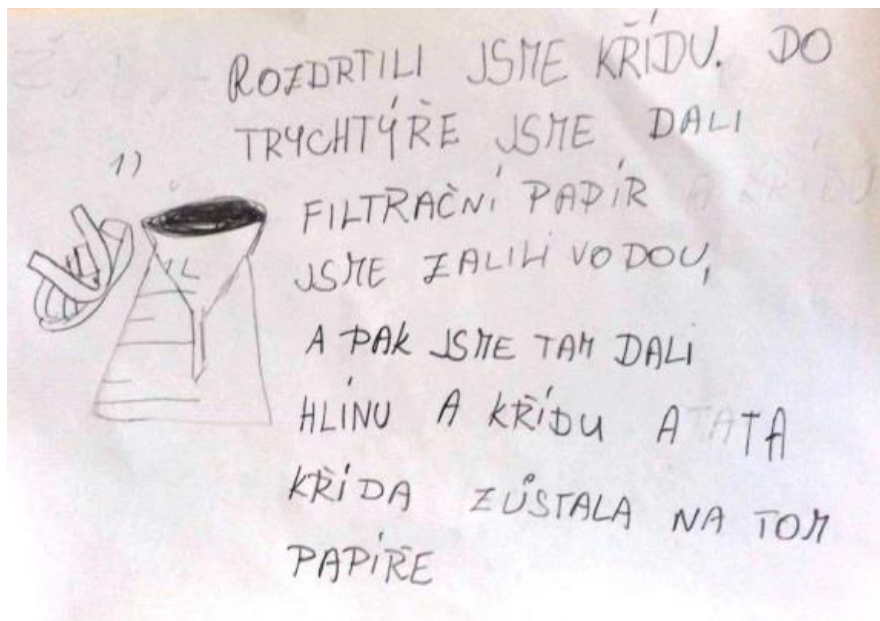 ROZDRTILI JSME KŘÍDU. DO
TRYCHTÝŘE JSME DALI
1)
FILTRAČNÍ PAPÍR A KŘÍDU
JSME ZALILI VODOU,
A PAK JSME TAM DALI
HLÍNU A KŘÍDU A TA
KŘÍDA ZŮSTALA NA TOM
PAPÍŘE